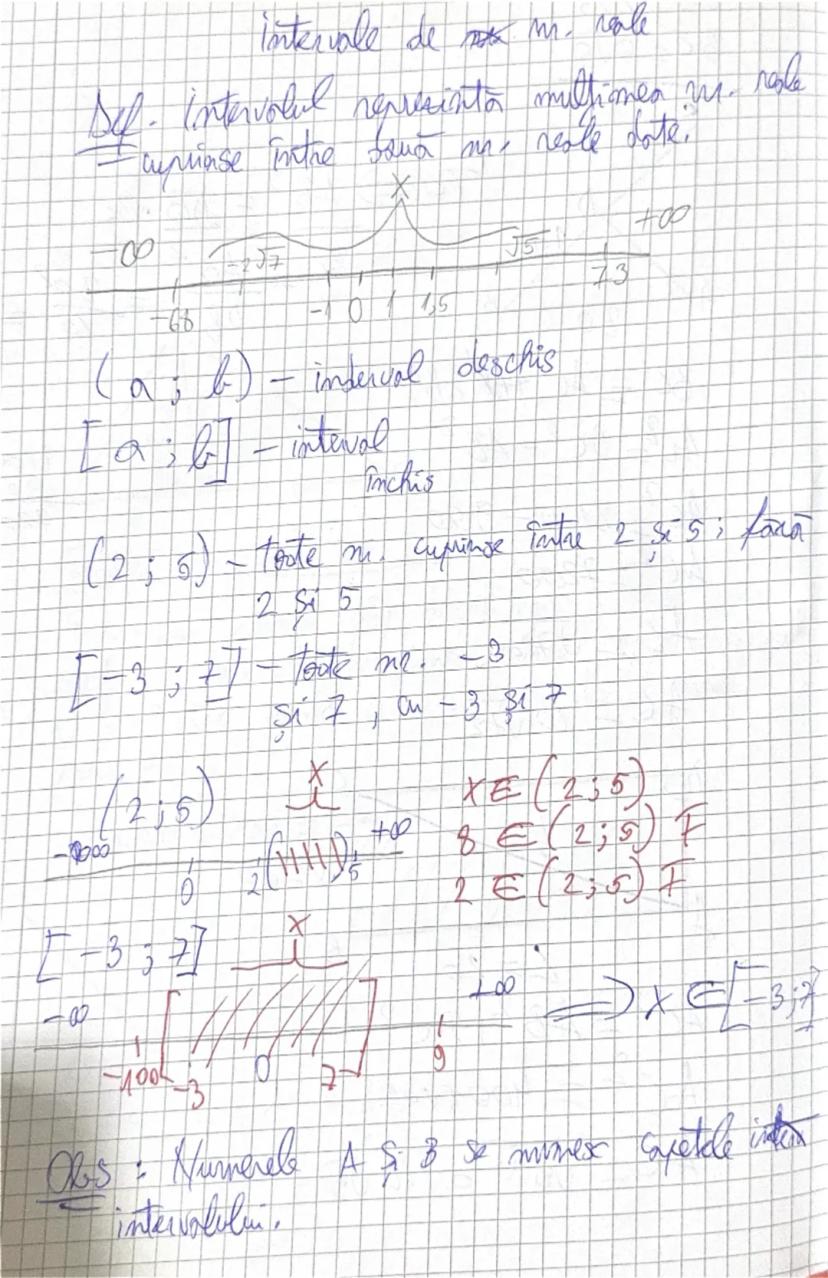 intervale de nr. reale
Def. intervalul reprezintă mulțimea nr. reale
cuprinse între două nr. reale date.
X
-∞ -2√7 √5 +∞
-68 -1 0 1 1,5 73
(a ; b) - interval deschis
[a ; b] - interval
închis
(2 ; 5) - toate nr. cuprinse între 2 și 5 ; fără
2 și 5
[-3 ; 7] - toate nr. -3
și 7 , cu -3 și 7
(2 ; 5) X x ∈ (2 ; 5)
-∞ +∞ 8 ∈ (2 ; 5) F
0 2 ( ) 5 2 ∈ (2 ; 5) F
[-3 ; 7] X
-∞ +∞ => x ∈ [-3 ; 7]
-100 [ -3 0 7 ] 9
Obs : Numerele A și B se numesc capetele
intervalului.